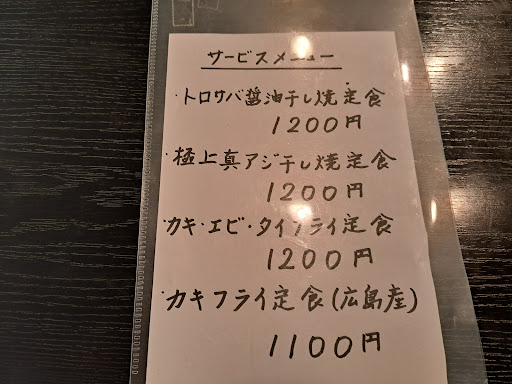 サービスメニュー
・トロサバ醤油干し焼定食
1200円
・極上真アジ干し焼定食
1200円
・カキ・エビ・タイフライ定食
1200円
・カキフライ定食(広島産)
1100円